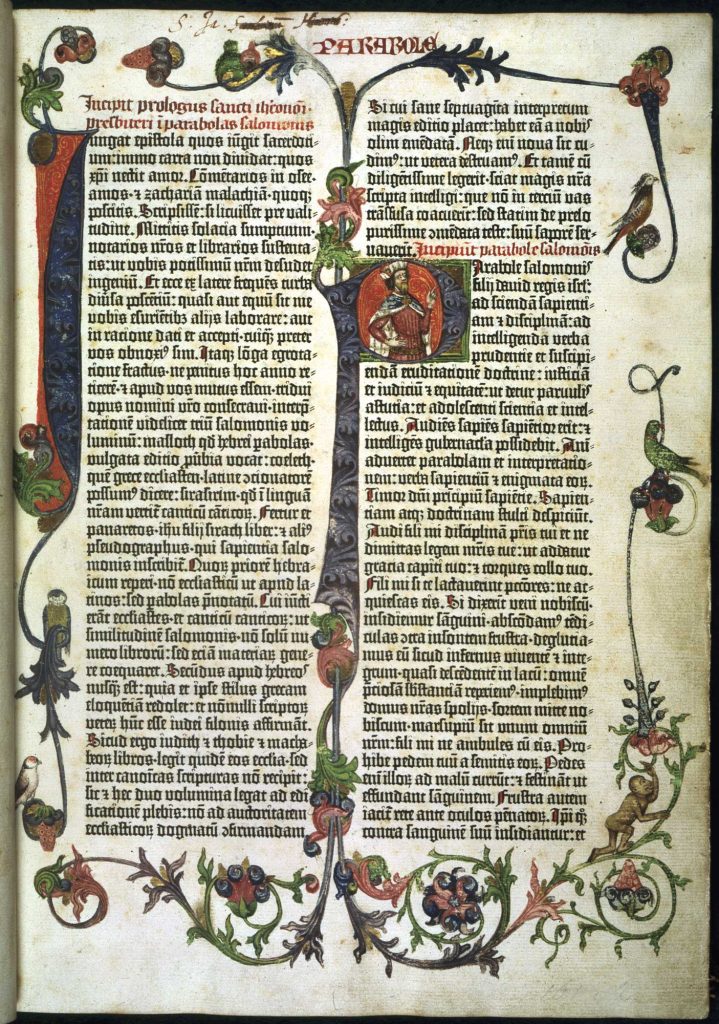 PARABOLE
Incipit prologus sancti iheronimi
presbiteri i parabolas salomonis
Iungat epistola quos iūgit sacerdoti-
um: immo carta non dividat: quos
xp̄i nectit amor. Cōmētarios in osee.
amos. ⁊ zachariā malachiā. quoq;
poscitis. Scripsissē: si licuisset pre vali-
tudine. Mittitis solacia sumptuum.
notarios nr̄os et librarios sustenta-
tis: ut vobis potissimū nr̄m desudet
ingeniū. Et ecce ex latere frequēs turba
diūsa poscētiū: quasi aut equū sit me
vobis esurientibꝫ alijs laborare: aut
in ratione dati et accepti. cuiq; preter
vos obnoxiꝰ sim. Itaq; lōga egrota-
tione fractus. ne penitus hoc anno re-
ticerē. ⁊ apud vos mutus essem. tridui
opus nomini vr̄o consecravi. interp̄-
tationē videlicet triū salomonis vo-
luminū: masloth qd̄ hebrei pabolas.
vulgata editio pūbia vocat: coeleth.
quē grece ecclīasten. latine ꝯcionatorē
possumꝰ dicere: sirasirim. qd̄ i linguā
nr̄am vertit̄ canticū cāticoꝝ. Fertur et
panaretos. ihu filij sirach liber: ⁊ aliꝰ
pseudographus. qui sapientia salo-
monis inscribit̄. Quoꝝ priorē hebra-
icum reperi. nō ecclīasticū ut apud la-
tinos: sed pabolas p̄notatū. Cui iūcti
erāt ecclīastes. et canticū canticoꝝ: ut
similitudinē salomonis. nō solū nu-
mero librorū: sed etiā materiaꝝ gene-
re coequaret. Secūdus apud hebreos
nusq̄ est: quia et ipse stilus grecam
eloquētiā redolet: et nōnulli scriptoꝝ
veteꝝ hūc esse iudei filonis affirmāt.
Sicud ergo iudith ⁊ thobie ⁊ macha-
beoꝝ libros. legit quidē eos eccīa. sed
inter canoīcas scripturas nō recipit:
sic ⁊ hec duo volumina legat ad edi-
ficationē plebis: nō ad auctoritatem
ecclīasticoꝝ dogmatū ꝯfirmandam.
Si cui sane septuagīta interpretum
magis editio placet: habet eā a nobis
olim emēdatā. Neq; eni nova sic cu-
dimꝰ: ut vetera destruamꝰ. Et tamē cū
diligētissime legerit. sciat magis nr̄a
scripta intelligi: que nō in terciū vas
trāsfusa coacuerit: sed statim de prelo
purissime ꝯmēdata teste: suū saporē ser-
vaverit. Incipiunt parabole salomōis
Parabole salomonis
filij david regis isrl̄:
ad sciendā sapienti-
am ⁊ disciplinā: ad
intelligendā verba
prudentie et suscipi-
endā eruditationē doctrine: iusticiā
et iudiciū ⁊ equitatē: ut detur parvulis
astutia: et adolescenti scientia et intel-
lectus. Audiēs sapiēs sapiētior erit: ⁊
intelligēs gubernacla possidebit. Ani-
advertet parabolam et interpretatio-
nem: verba sapientiū ⁊ enigmata eoꝝ.
Timor dn̄i p̄ncipiū sapiētie. Sapien-
tiam atq; doctrinam stulti despiciūt.
Audi fili mi disciplinā pr̄is tui et ne
dimittas legem mr̄is tue: ut addatur
gracia capiti tuo: ⁊ torques collo tuo.
Fili mi si te lactaverint pccōres: ne ac-
quiescas eis. Si dixerint veni nobiscū.
insidiemur sāguini. abscōdamꝰ tēdi-
culas ꝯtra insontem frustra. deglutia-
mus eū sicud infernus viventē ⁊ inte-
grum. quasi descēdentē in lacū: omnē
p̄ciosā sb̄stanciā repiemꝰ. implebimꝰ
domus nr̄as spolijs. sortem mitte no-
biscum. marsupiū sit unum omniū
nr̄m: fili mi ne ambules cū eis. Pro-
hibe pedem tuū a semitis eoꝝ. Pedes
eni illoꝝ ad malū currūt: ⁊ festināt ut
effundant sāguinem. Frustra autem
iacit̄ rete ante oculos pēnatoꝝ. Ip̄i q;
contra sanguinē suū insidiantur: et